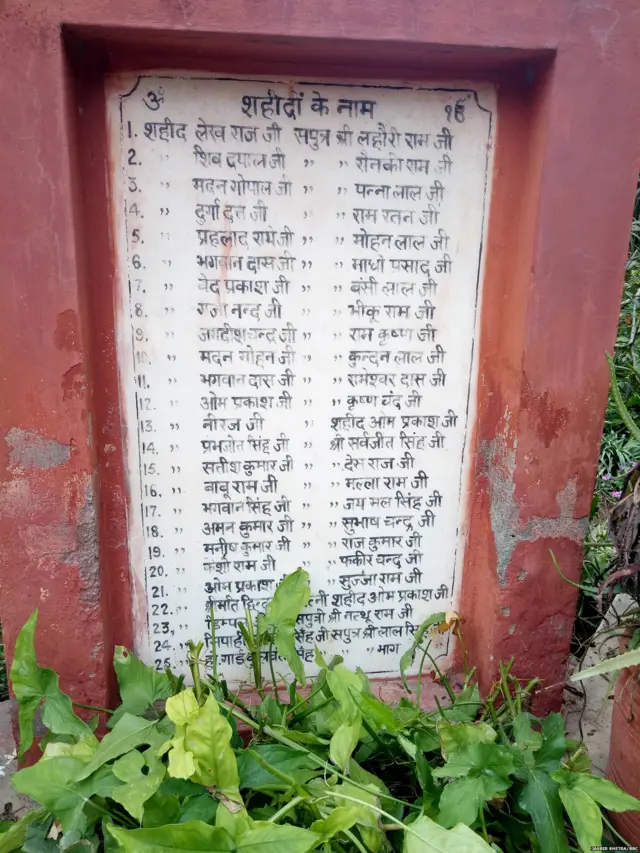 ॐ शहीदों के नाम ੴ
1. शहीद लेख राज जी सपुत्र श्री लहौरी राम जी
2. ,, शिव दयाल जी ,, ,, रौनकी राम जी
3. ,, मदन गोपाल जी ,, ,, पन्ना लाल जी
4. ,, दुर्गा दत्त जी ,, ,, राम रतन जी
5. ,, प्रहलाद राम जी ,, ,, मोहन लाल जी
6. ,, भगवान दास जी ,, ,, माधो प्रसाद जी
7. ,, वेद प्रकाश जी ,, ,, बंसी लाल जी
8. ,, गजा नन्द जी ,, ,, भीकु राम जी
9. ,, जगदीश चन्द्र जी ,, ,, राम कृष्ण जी
10. ,, मदन मोहन जी ,, ,, कुन्दन लाल जी
11. ,, भगवान दास जी ,, ,, रामेश्वर दास जी
12. ,, ओम प्रकाश जी ,, ,, कृष्ण चंद जी
13. ,, नीरज जी ,, शहीद ओम प्रकाश जी
14. ,, प्रभजीत सिंह जी ,, श्री सर्वजीत सिंह जी
15. ,, सतीश कुमार जी ,, ,, देस राज जी
16. ,, बाबू राम जी ,, ,, मल्ला राम जी
17. ,, भगवान सिंह जी ,, ,, जय मल सिंह जी
18. ,, अमन कुमार जी ,, ,, सुभाष चन्द्र जी
19. ,, मनीष कुमार जी ,, ,, राज कुमार जी
20. ,, राम जी ,, ,, फकीर चन्द जी
21. ,, ओम प्रकाश ,, सुज्जा राम जी
22. ,, शहीद ओम प्रकाश जी
23. ,, सपुत्री श्री नत्थू राम जी
24. सिंह जी सपुत्र श्री लाल सिंह
25. ,, भाग
JASBIR SHETRA/BBC